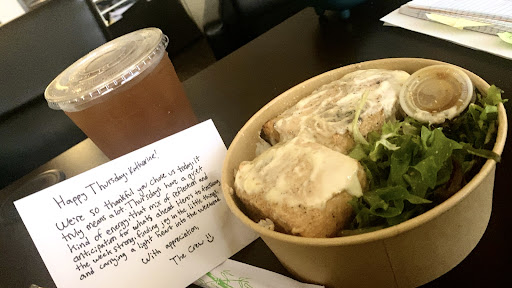 Happy Thursday, Katharine!
We're so thankful you chose us today, it
truly means a lot. Thursdays have a quiet
kind of energy that mix of reflection and
anticipation for what's ahead. Here's to finishing
the week strong, finding joy in the little things,
and carrying a light heart into the weekend.
With appreciation,
The Crew :)